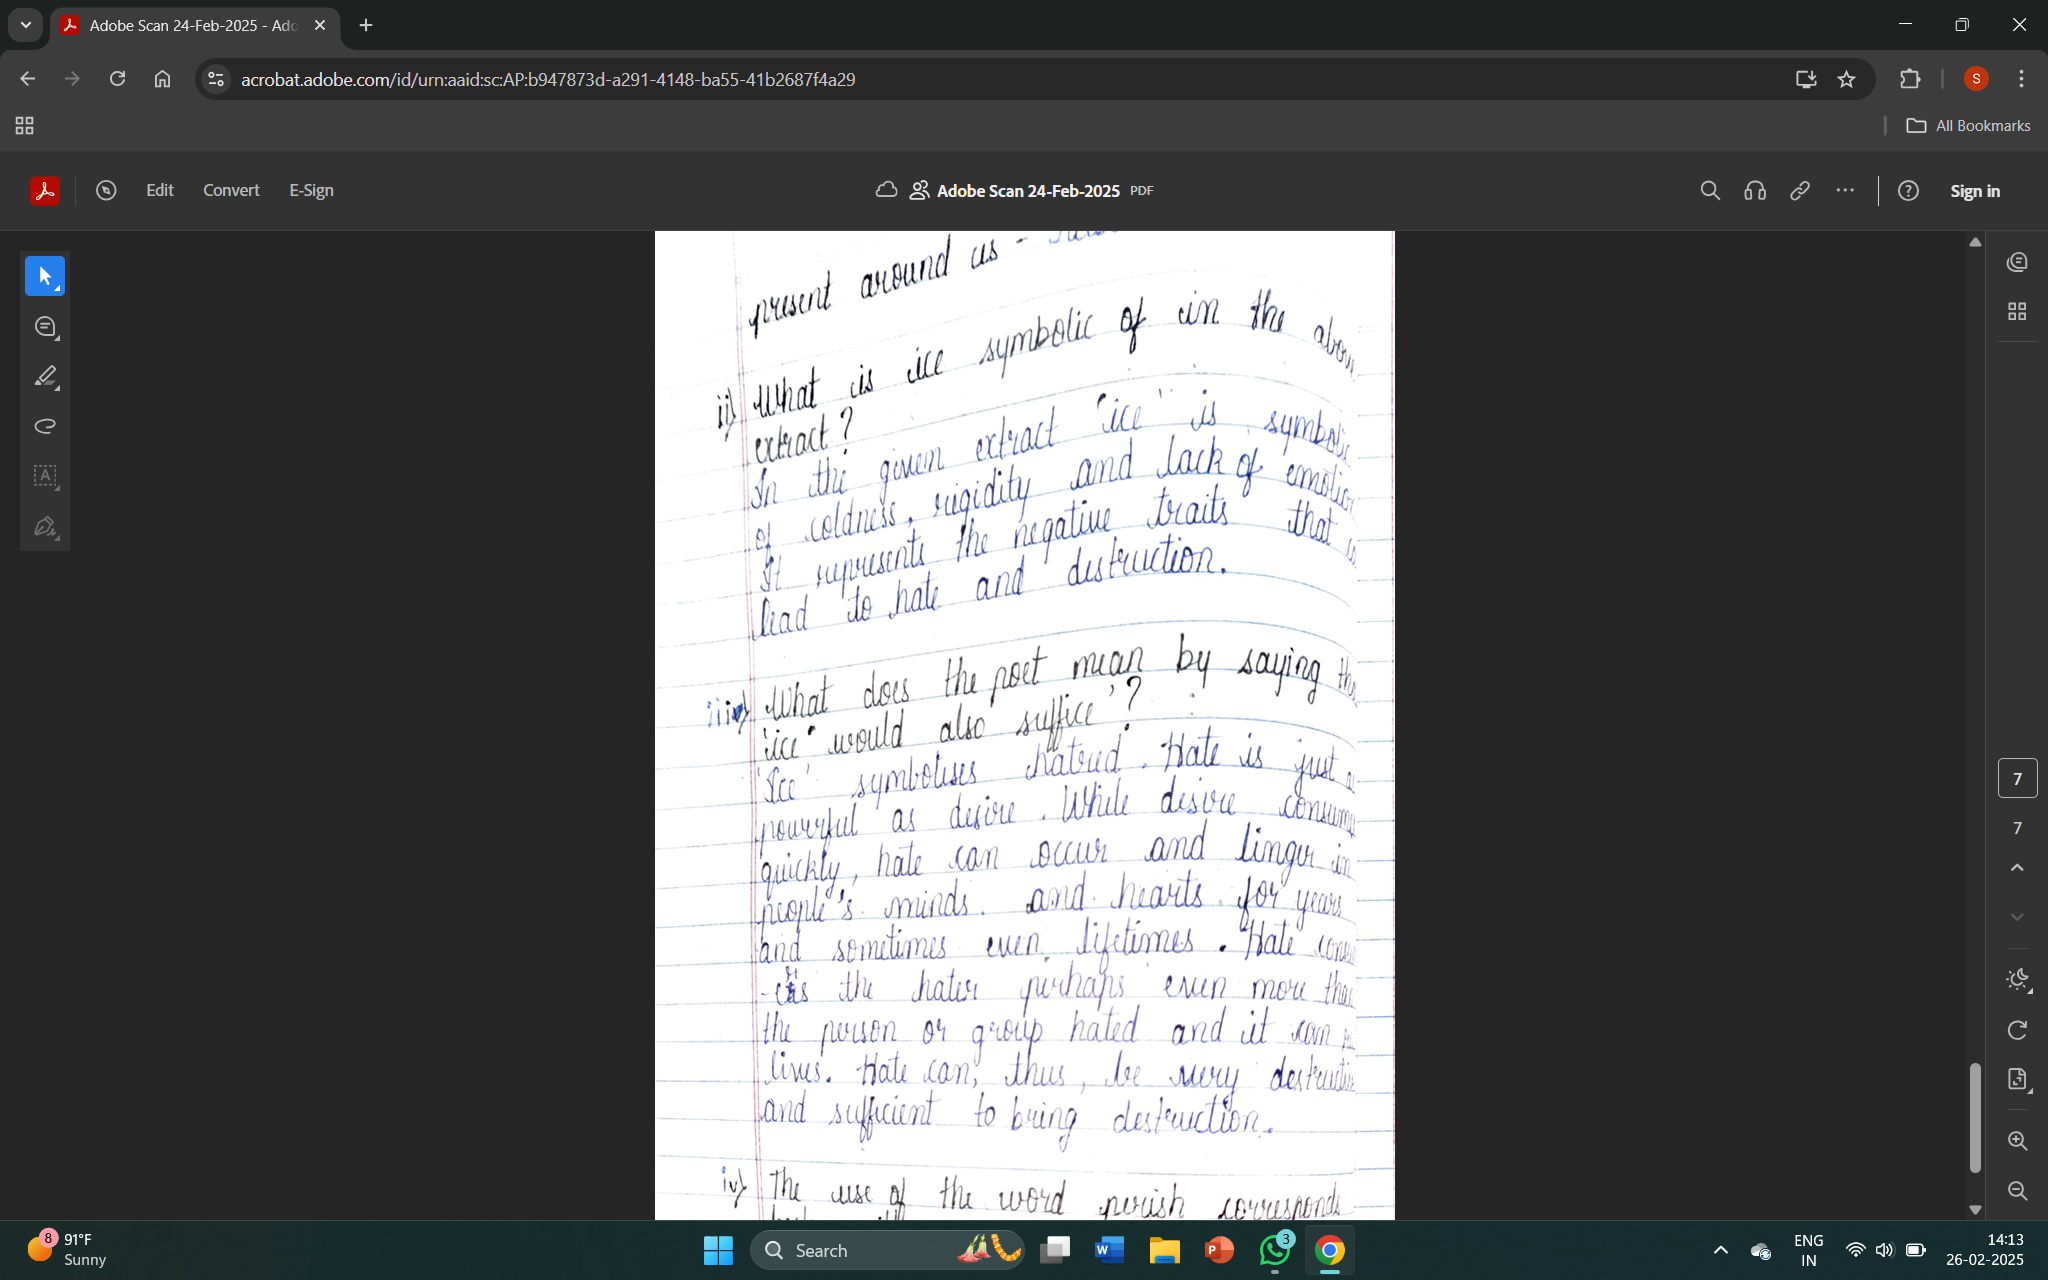 Adobe Scan 24-Feb-2025 - Ado
acrobat.adobe.com/id/urn:aaid:sc:AP:b947873d-a291-4148-ba55-41b2687f4a29
S
All Bookmarks
Edit Convert E-Sign
Adobe Scan 24-Feb-2025 PDF
Sign in
present around us -
ii) What is ice symbolic of in the abov
extract?
In the given extract "ice" is symbolic
of coldness, rigidity and lack of emotio
It represents the negative traits that
lead to hate and destruction.
iii) What does the poet mean by saying tha
'ice' would also suffice'?
'Ice' symbolises hatred. Hate is just
powerful as desire. While desire consum
quickly, hate can occur and linger in
people's minds and hearts for years
and sometimes even lifetimes. Hate consu
-es the hater perhaps even more than
the person or group hated and it can
lives. Hate can, thus, be very destructive
and sufficient to bring destruction.
iv) The use of the word perish corresponds
7
7
8
91°F
Sunny
Search
3
ENG
IN
14:13
26-02-2025